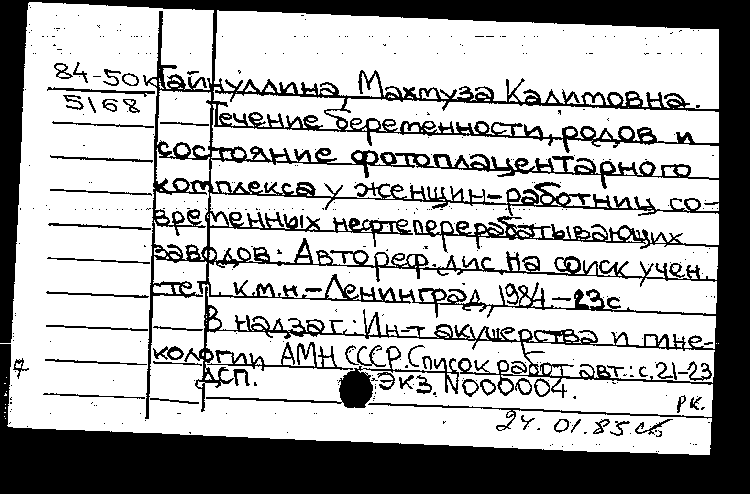 84-50к Гайнуллина, Махтуза Калимовна.
5168 Течение беременности, родов и
состояние фотоплацентарного
комплекса у женщин-работниц со-
временных нефтеперерабатывающих
заводов: Автореф. дис. на соиск учен.
степ к.м.н. - Ленинград, 1984 - 23с.
В надзаг.: Ин-т акушерства и гине-
кологии АМН СССР. Список работ авт.: с. 21-23
7 ДСП. Экз. N000004.
РК.
24.01.85